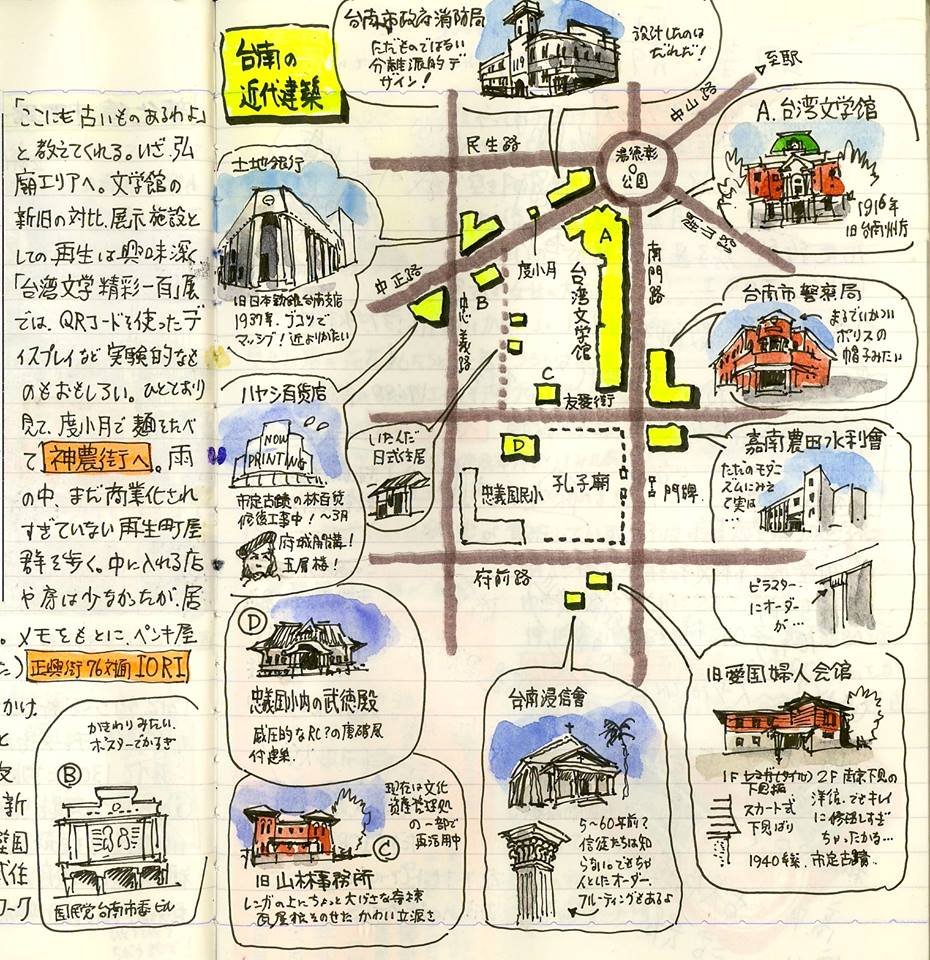 台南の
近代建築
台南市政府消防局
ただものではない
分離派的デ
ザイン!
設計したのは
だれだ!
119
至駅
中山路
民生路
湯徳彰
公園
A. 台湾文学館
1916年
旧台南州庁
「ここにも古いものあるわよ」
と教えてくれる。いざ、孔
廟エリアへ。文学館の
新旧の対比、展示施設と
しての再生は興味深く
「台湾文学精彩一百」展
では、QRコードを使ったデ
ィスプレイなど実験的なも
のもおもしろい。ひととおり
見て、度小月で麺をたべ
て神農街へ。雨
の中、まだ商業化され
すぎていない再生町屋
群を歩く。中に入れる店
や房は少なかったが、居
。メモをもとに、ペンキ屋
た)正興街76対面 IORI
かけ
と
友
新
愛国
式住
ワーク
土地銀行
旧日本勧銀台南支店
1937年. ブコツで
マッシブ! 近よりがたい
中正路
B
度小月
忠義路
A
台湾文学館
南門路
C
友愛街
台南市警察局
まるでいかつい
ポリスの
帽子みたい
ハヤシ百貨店
NOW
PRINTING
市定古蹟の林百货
修復工事中! 〜3月
府城開講!
五層楼!
いたんだ
日式住居
D
忠義国小
孔子廟
門碑
嘉南農田水利會
ただのモダニ
ズムにみえ
て実は…
ピラスター
にオーダー
が…
府前路
D
忠義国小内の武徳殿
威圧的なRC?の唐破風
付建築.
台南浸信會
5〜60年前?
信徒たちは知
らない。でもちゃ
んとしたオーダー.
フルーティングもあるよ
旧愛国婦人会館
1F
下見板
スカート式
下見ばり
2F 南京下見の
洋館. でもキレイ
に修復しすぎ
ちゃったかな…
1940年築. 市定古蹟.
かきわりみたい.
ポスターでかすぎ
B
国民党台南市委ビル
現在は文化
資産管理処
の一部で
再活用中
C
旧山林事務所
レンガの上にちょっと大げさな寄棟
瓦屋根をのせた かわい立派さ